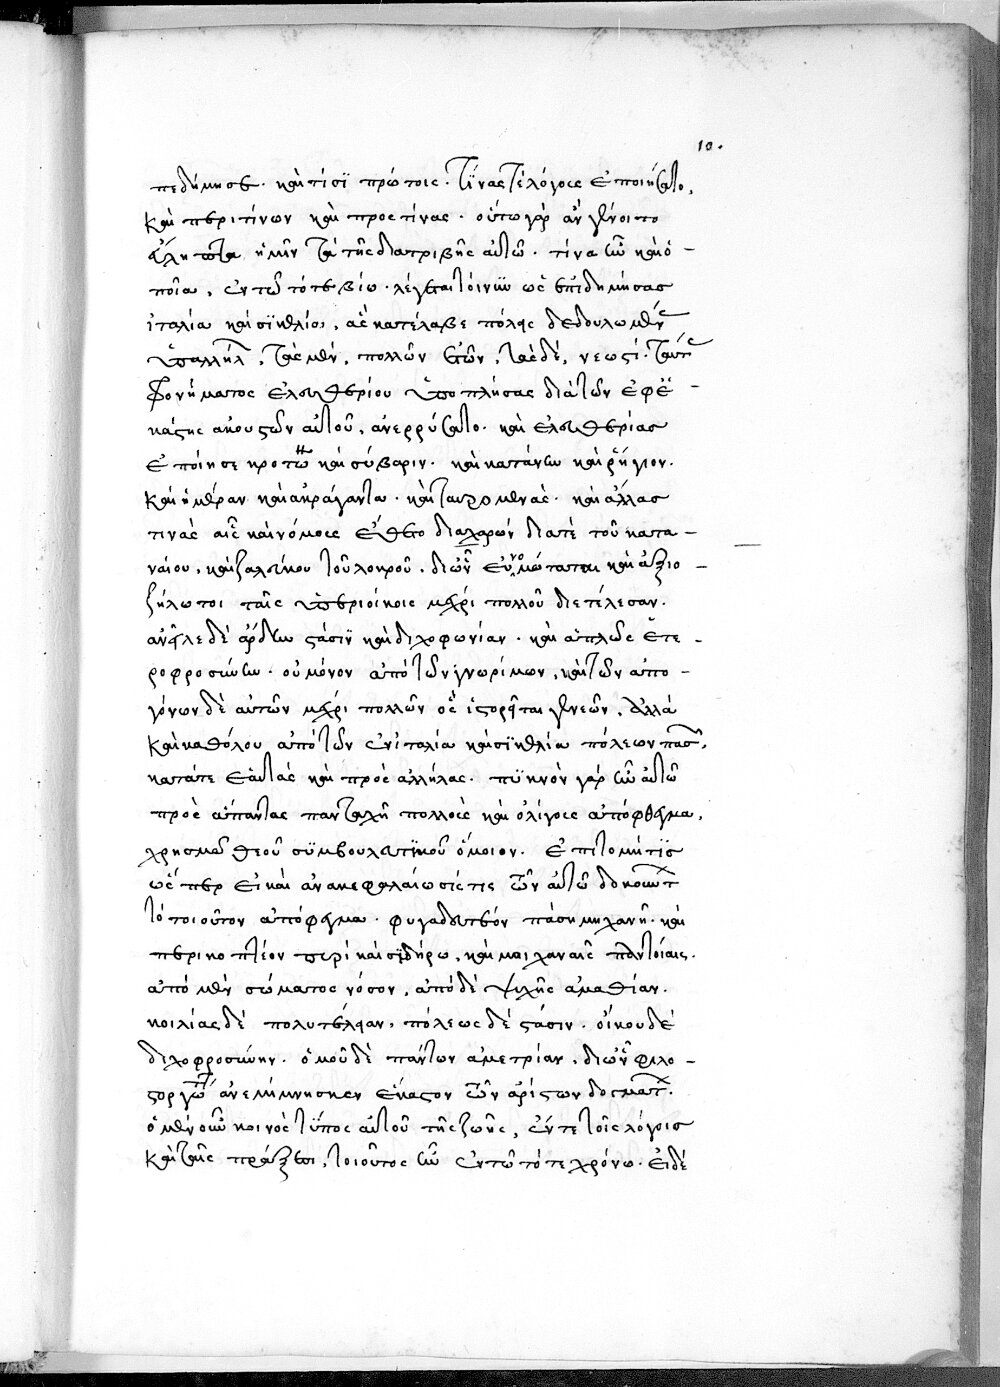 10.
πεδήμησε· καὶ τίσϊ πρώτοις· τίνάς τε λόγους ἐποιήσατο,
καὶ περὶ τίνων καὶ πρὸς τίνας· οὕτω γὰρ ἂν γένοιτο
εὔληπτα ἡμῖν τὰ τῆς διατριβῆς αὐτοῦ· τίνα ἦν καὶ ὁ-
ποῖα, ἐν τῶ τότε βίω· λέγεται τοίνυν ὡς ἐπιδημήσας
ἰταλία καὶ σϊκελία, ἃς κατέλαβε πόλεις δεδουλωμένας
ὑπ' ἀλλήλων, τὰς μὲν, πολλῶν ἐτῶν, τὰς δὲ, νεωστί· ταύτας
φρονήματος ἐλευθερίου ὑποπλήσας διὰ τῶν ἐφ' ἑ-
κάστης ἀκουστῶν αὐτοῦ, ἀνερρύσατο· καὶ ἐλευθερίας
ἐποίησε κρότωνα καὶ σύβαριν· καὶ κατάνην καὶ ῥήγιον·
καὶ ἡμέραν καὶ ἀκράγαντα· καὶ ταυρομενὰς· καὶ ἄλλας
τινάς αἷς καὶ νόμους ἔθετο διὰ χαρώνδα τε τοῦ κατα-
ναίου, καὶ ζαλεύκου τοῦ λοκροῦ, δι' ὧν εὐνομώταται καὶ ἀξιο-
ζήλωτοι ταῖς περιοίκοις μέχρι πολλοῦ διετέλεσαν·
ἀνεῖλε δὲ ἄρδην στάσιν καὶ διχοφωνίαν· καὶ ἁπλῶς ἑτε-
ροφροσύνην· οὐ μόνον ἀπὸ τῶν γνωρίμων, καὶ τῶν ἀπο-
γόνων δὲ αὐτῶν μέχρι πολλῶν ὡς ἱστορεῖται γενεῶν, ἀλλὰ
καὶ καθόλου ἀπὸ τῶν ἐν ἰταλία καὶ σϊκελία πόλεων πασῶν,
κατά τε ἑαυτὰς καὶ πρὸς ἀλλήλας· πϋκνὸν γὰρ ἦν αὐτῶ
πρὸς ἅπαντας πανταχῆ πολλοὺς καὶ ὀλίγους ἀπόφθεγμα,
χρησμῶ θεοῦ σϋμβουλευτϊκοῦ ὅμοιον· ἐπιτομή τϊς
ὡς περ εἰ καὶ ἀνακεφαλαίωσίς τις τῶν αὐτῶ δοκούντων
τὸ τοιοῦτον ἀπόφθεγμα· φυγαδευτέον πάση μηχανῆ· καὶ
περικοπτέον πυρὶ καὶ σϊδήρω, καὶ μηχαναῖς παντοίαις·
ἀπὸ μὲν σώματος νόσον, ἀπὸ δὲ ψυχῆς ἀμαθίαν·
κοιλίας δὲ πολυτέλειαν, πόλεως δὲ στάσιν· οἴκου δὲ
διχοφροσύνην· ὁμοῦ δὲ πάντων ἀμετρίαν, δι' ὧν φιλο-
στοργώτατα ἀνεμίμνησκεν ἕκαστον τῶν ἀρίστων δογμάτων·
ὁ μὲν οὖν κοινὸς τύπος αὐτοῦ τῆς ζωῆς, ἔν τε τοῖς λόγοις
καὶ ταῖς πράξεσι, τοιοῦτος ἦν ἐν τῶ τότε χρόνω· εἰ δὲ